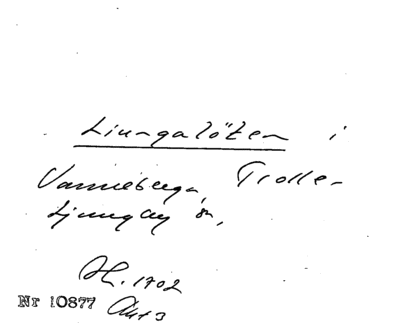 Liungalöten i
Vanneberga, Trolle-
Ljungby sn,
H. 1702
Nr 10877 Akt 3